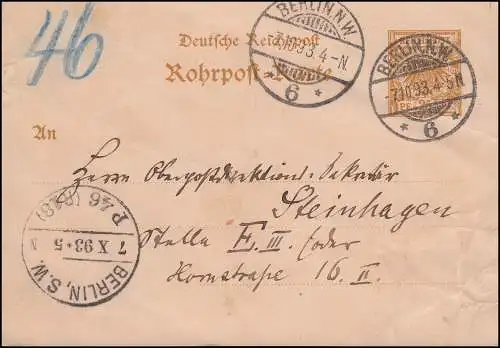 46
Deutsche Reichspost
Rohrpost-Karte
BERLIN, N.W.
7.10.93. 4-N.
* 6 *
BERLIN, N.W.
-7.10.93. 4-5N.
* 6 *
An
Herrn Oberpostdirektions-Sekretär
Steinhagen
Stelle E. III. (oder
Hornstraße 16. II.
P.46 (R18)
7 X 93 * 5 N
BERLIN, S.W.